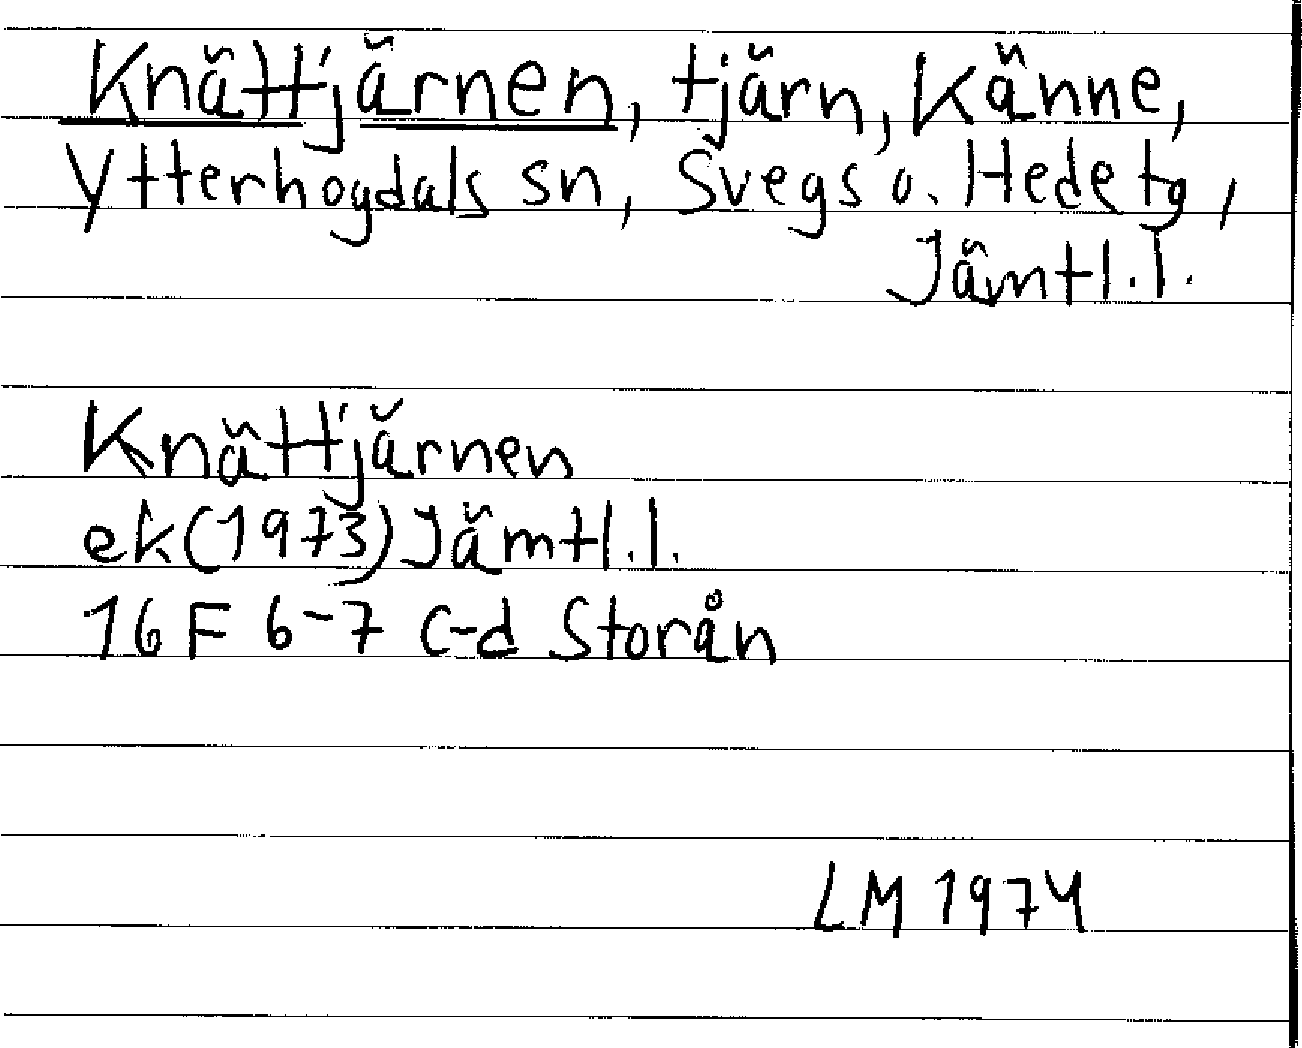 Knättjärnen, tjärn, Känne,
Ytterhogdals sn, Svegs o. Hede tg,
Jämtl. l.
Knättjärnen
ek (1973) Jämtl. l.
16 F 6-7 c-d Storån
LM 1974